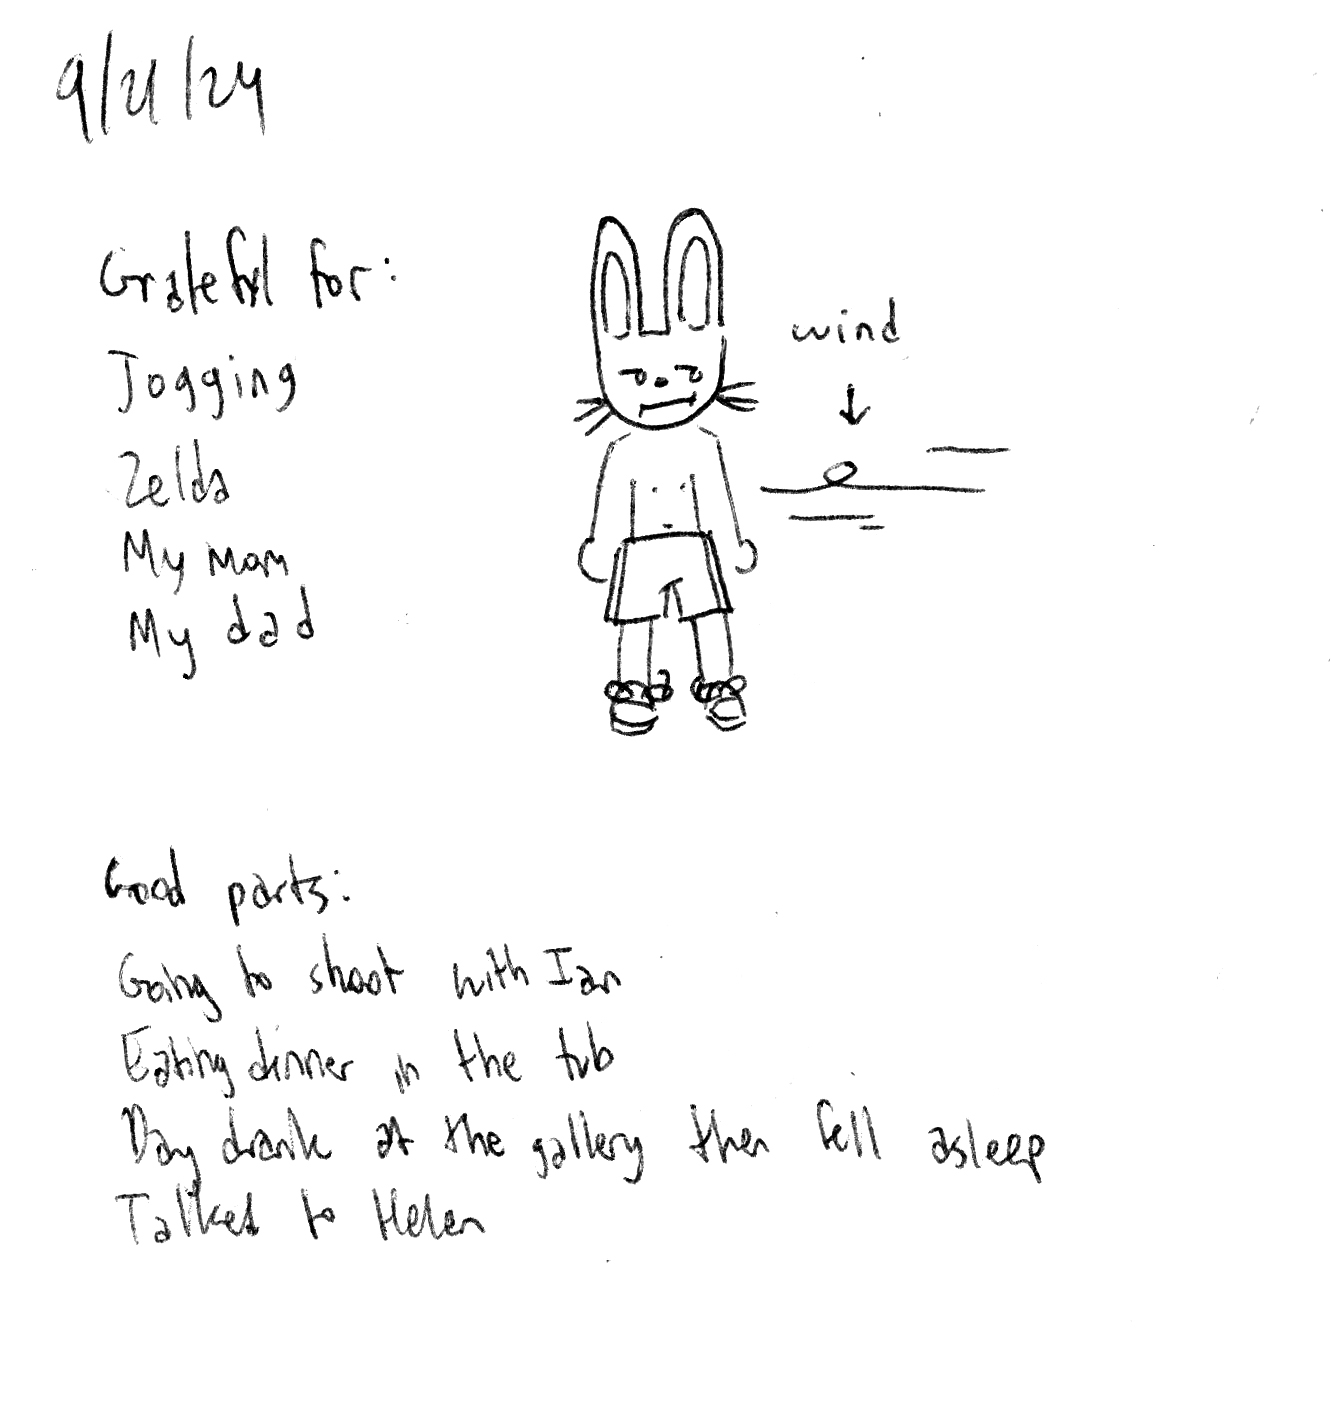 9/21/24
Grateful for:
Jogging
Zelda
My mom
My dad
wind
Good parts:
Going to shoot with Ian
Eating dinner in the tub
Day drank at the gallery then fell asleep
Talked to Helen